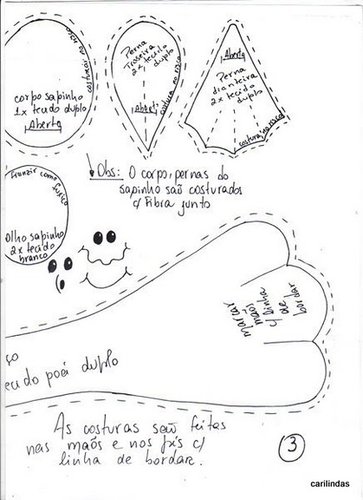 costurar no risco
corpo sapinho
1x tecido duplo
Aberto
Perna
Traseira
2x tecido
duplo
Aberto
costura no risco
Aberto
Perna
dianteira
2x tecido
duplo
costura no risco
Obs: O corpo, pernas do
sapinho são costurados
c/ Fibra junto
Franzir como fuxico
Olho sapinho
2x tecido
branco
marcar
mãos
c/ linha
de
bordar
ço
eudo poá duplo
As costuras são feitas
nas mãos e nos pés c/
linha de bordar.
3
carilindas